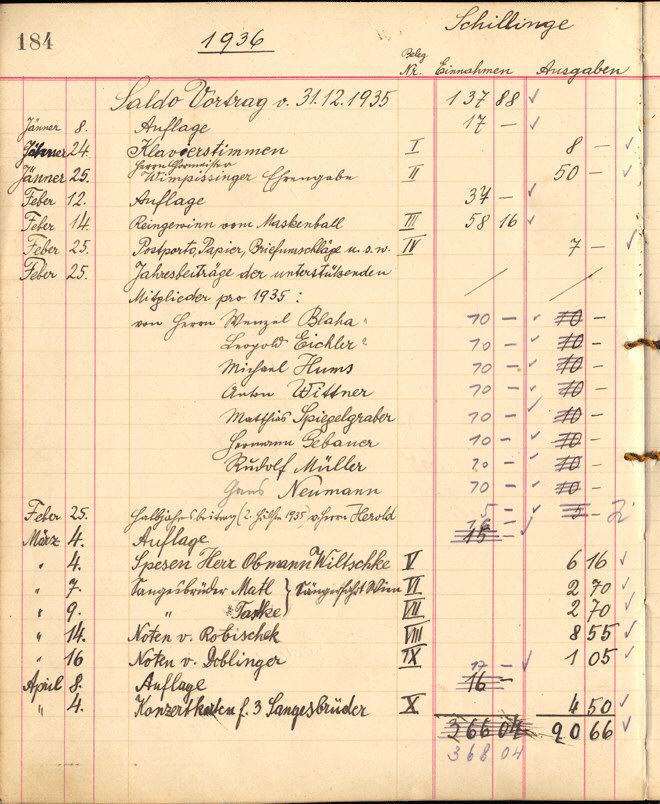 184 1936 Schillinge
Beleg Nr. Einnahmen Ausgaben
Saldo Vortrag v. 31.12.1935 137 88 ✓
Jänner 8. Auflage 17 — ✓
Jänner 24. Klavierstimmen I 8 — ✓
Herrn Chormeister
Jänner 25. Wimpissinger Ehrengabe II 50 — ✓
Feber 12. Auflage 37 — ✓
Feber 14. Reingewinn vom Maskenball III 58 16 ✓
Feber 25. Postporto, Papier, Briefumschläge u. s. w. IV 7 — ✓
Feber 25. Jahresbeiträge der unterstützenden
Mitglieder pro 1935 :
von Herrn Wenzel Blaha 10 — ✓ 10 —
Leopold Eichler 10 — ✓ 10 —
Michael Hums 10 — ✓ 10 —
Anton Wittner 10 — ✓ 10 —
Matthias Spiegelgraber 10 — ✓ 10 —
Hermann Gebauer 10 — ✓ 10 —
Rudolf Müller 10 — ✓ 10 —
Hans Neumann 10 — ✓ 10 —
Feber 25. Halbjahresbeitrag (2. Hälfte 1935) v. Herrn Herold 5 — ✓ 5 —
März 4. Auflage 16 — ✓ 15 —
" 4. Spesen Herr Obmann Wiltschke V 6 16 ✓
" 7. Sangesbrüder Matl } Sängerfahrt Wien VI 2 70 ✓
" 9. " Taske VII 2 70 ✓
" 14. Noten v. Robischek VIII 8 55 ✓
" 16 Noten v. Doblinger IX 1 05 ✓
April 8. Auflage 17 — ✓ 16 —
" 4. Konzertkarten f. 3 Sangesbrüder X 4 50 ✓
366 04 90 66 ✓
368 04